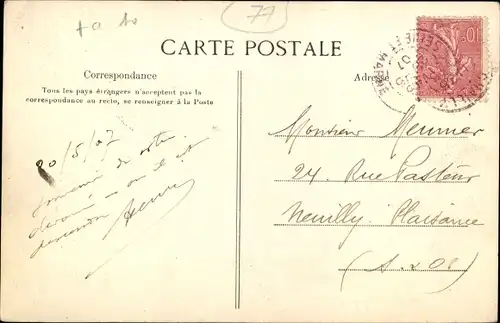 77
CARTE POSTALE
Correspondance
Tous les pays étrangers n'acceptent pas la
correspondance au recto, se renseigner à la Poste
Adresse
10
SEINE ET MARNE
07
20/5/07
souvenir de votre
dévoué
Monsieur Meunier
24 Rue Pasteur
Neuilly Plaisance
(S & Oe)